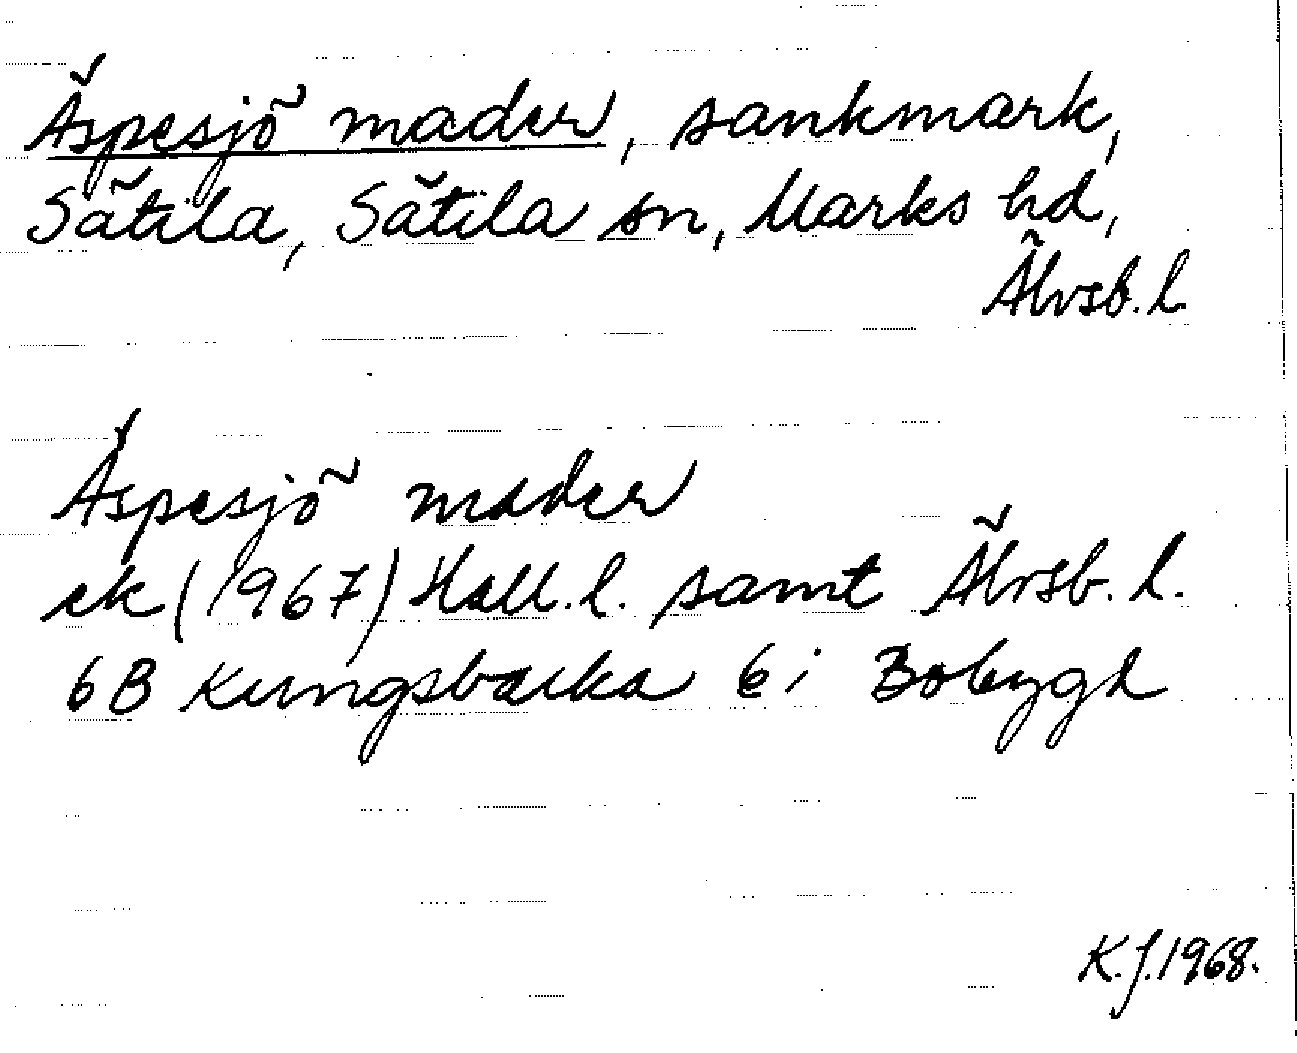 Äspesjö mader, sankmark,
Sätila, Sätila sn, Marks hd,
Älvsb. l.
Äspesjö mader
ek (1967) Hall. l. samt Älvsb. l.
6B Kungsbacka 6 i Bobygd
K.J. 1968.